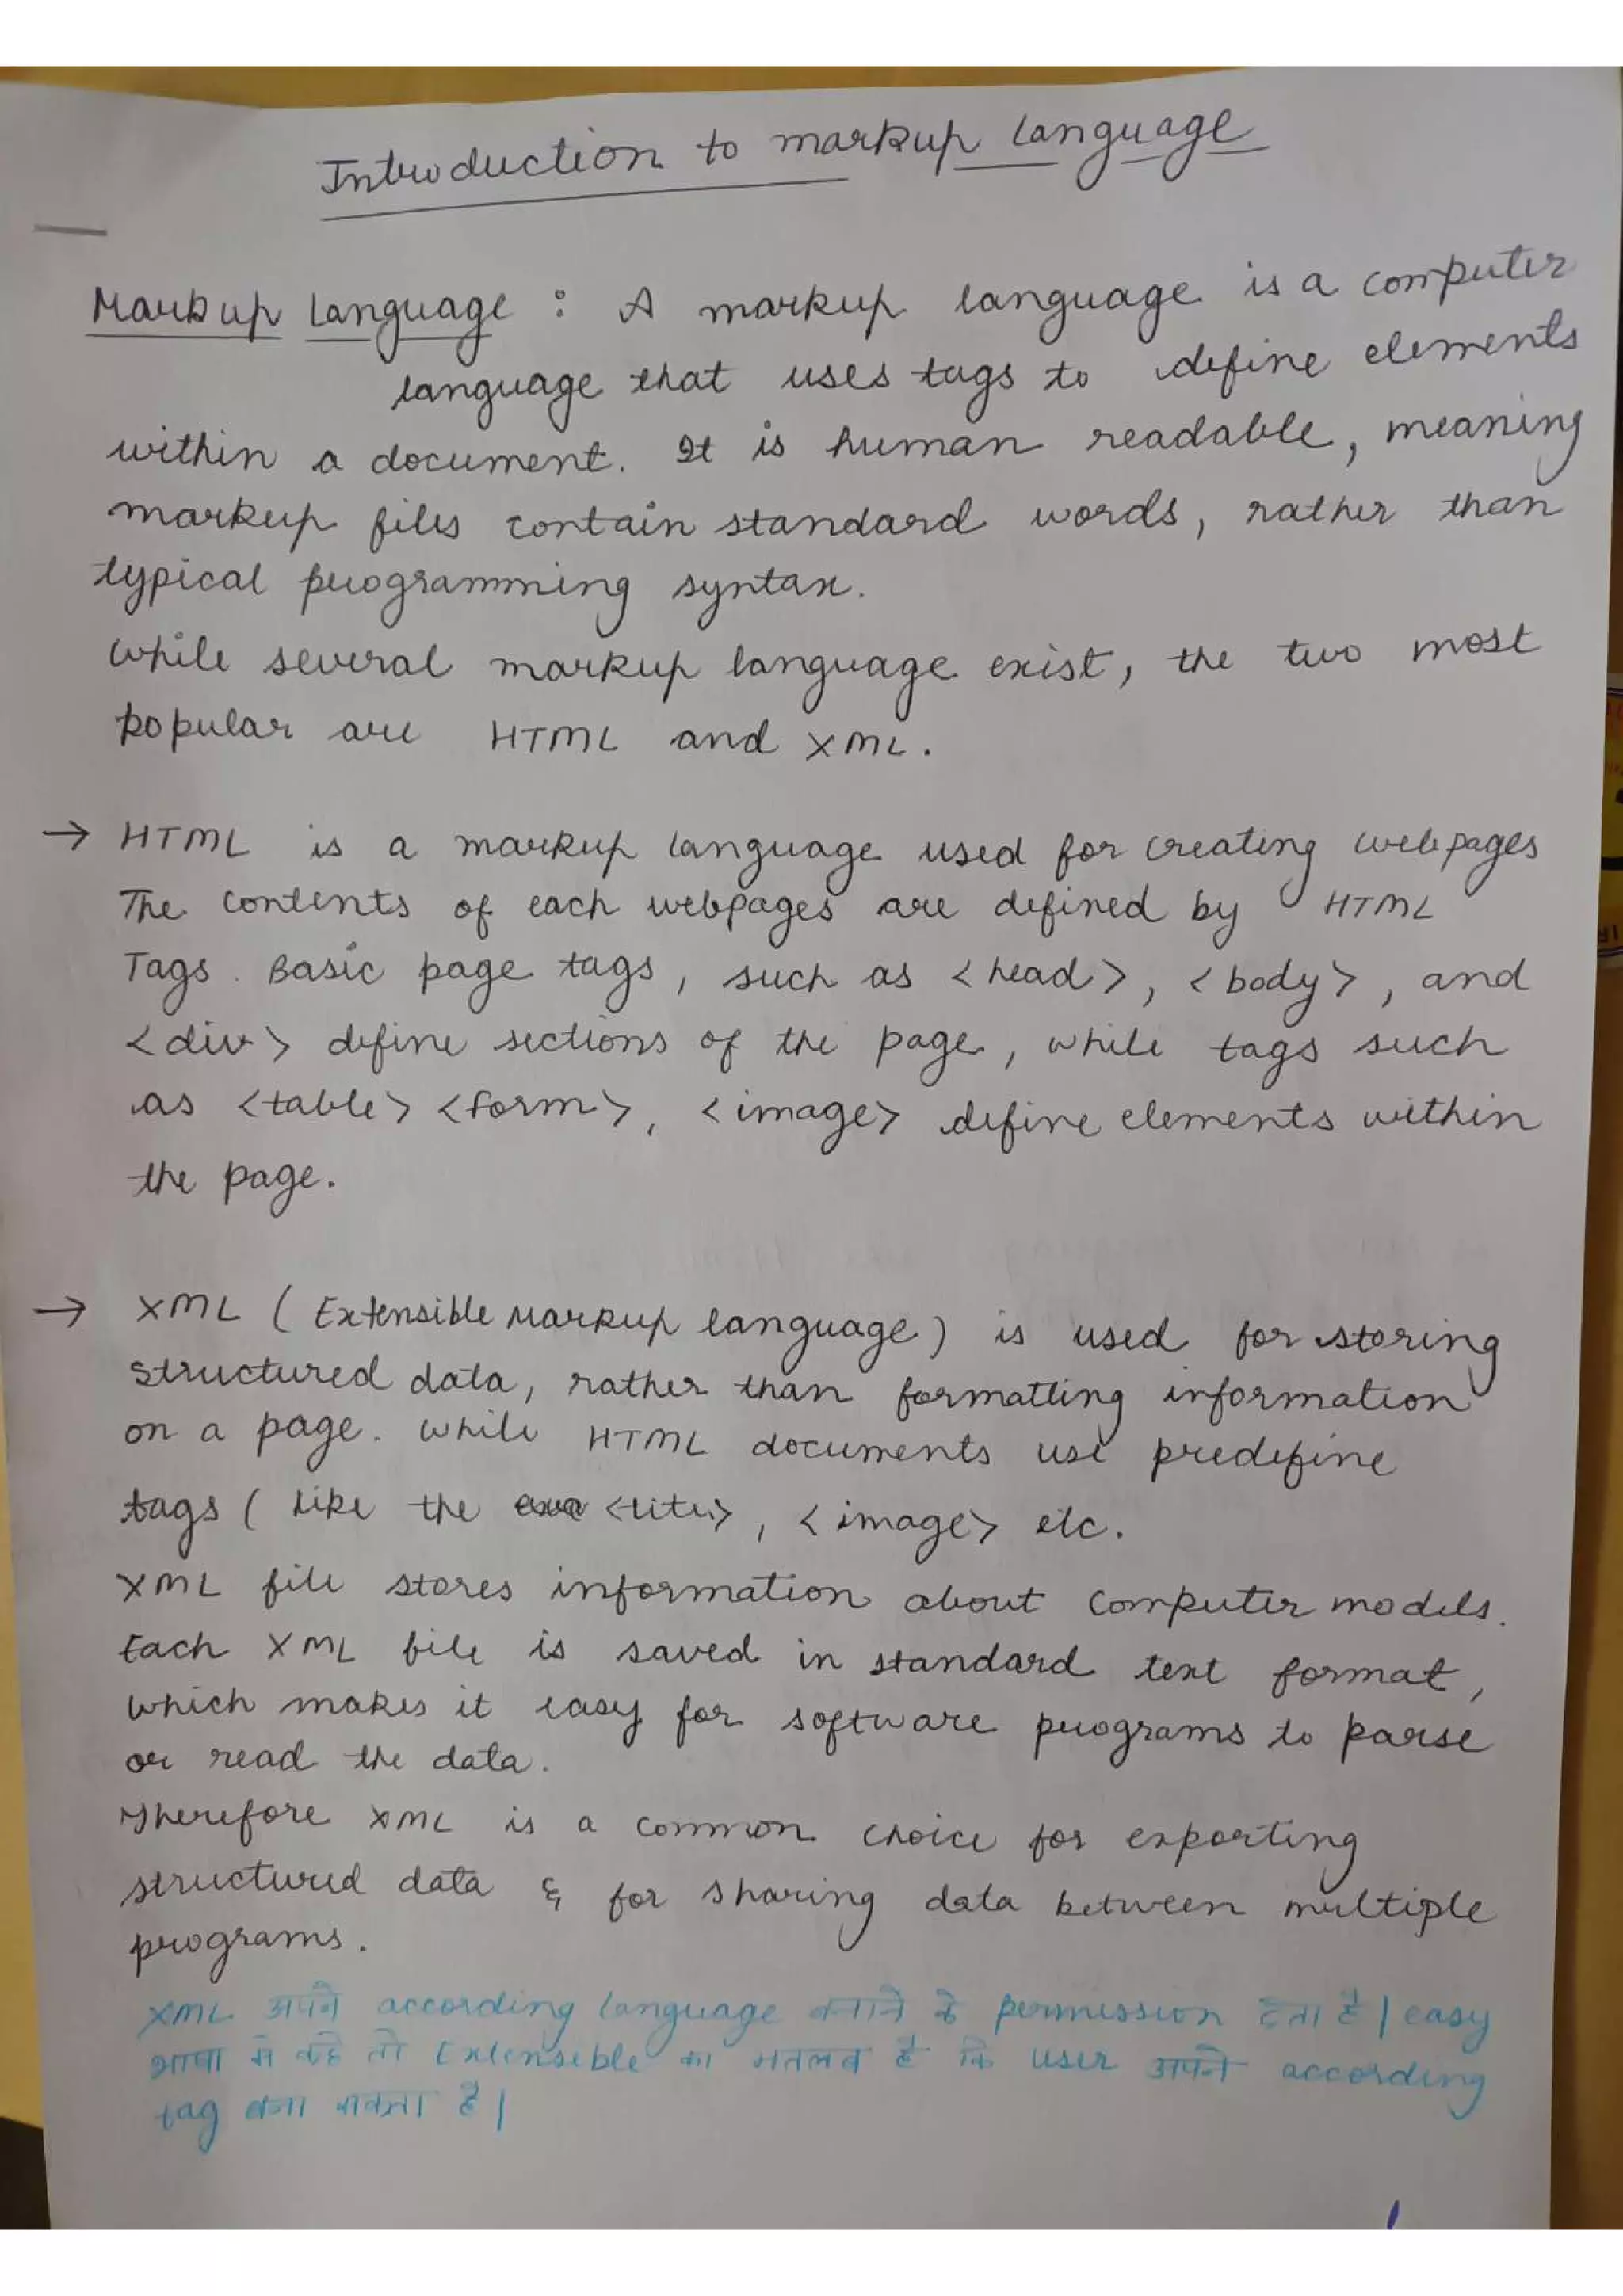 Introduction to markup Language
Markup Language : A markup language is a computer
language that uses tags to define elements
within a document. It is human readable, meaning
markup files contain standard words, rather than
typical programming syntax.
While several markup language exist, the two most
popular are HTML and XML.
→ HTML is a markup language used for creating webpages
The contents of each webpages are defined by HTML
Tags. Basic page tags, such as <head>, <body>, and
<div> define sections of the page, while tags such
as <table> <form>, <image> define elements within
the page.
→ XML (Extensible Markup language) is used for storing
structured data, rather than formatting information
on a page. While HTML documents use predefine
tags ( like the <title>, <image> etc.
XML file stores information about computer models.
Each XML file is saved in standard text format,
which makes it easy for software programs to parse
or read the data.
Therefore XML is a common choice for exporting
structured data & for sharing data between multiple
programs.
XML अपने according language बनाने के permission देता है | easy
भाषा मे कहे तो Extensible का मतलब है कि user अपने according
tag बना सकता है |